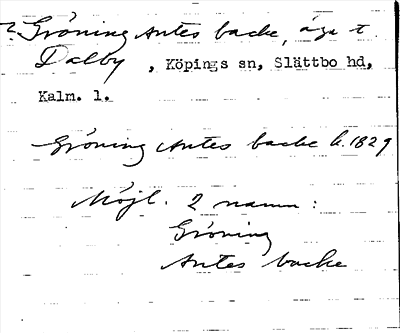 ? Gröning Antes backe, äga t.
Dalby, Köpings sn, Slättbo hd,
Kalm. l.
Gröning Antes backe k. 1829
Möjl. 2 namn:
Gröning
Antes backe